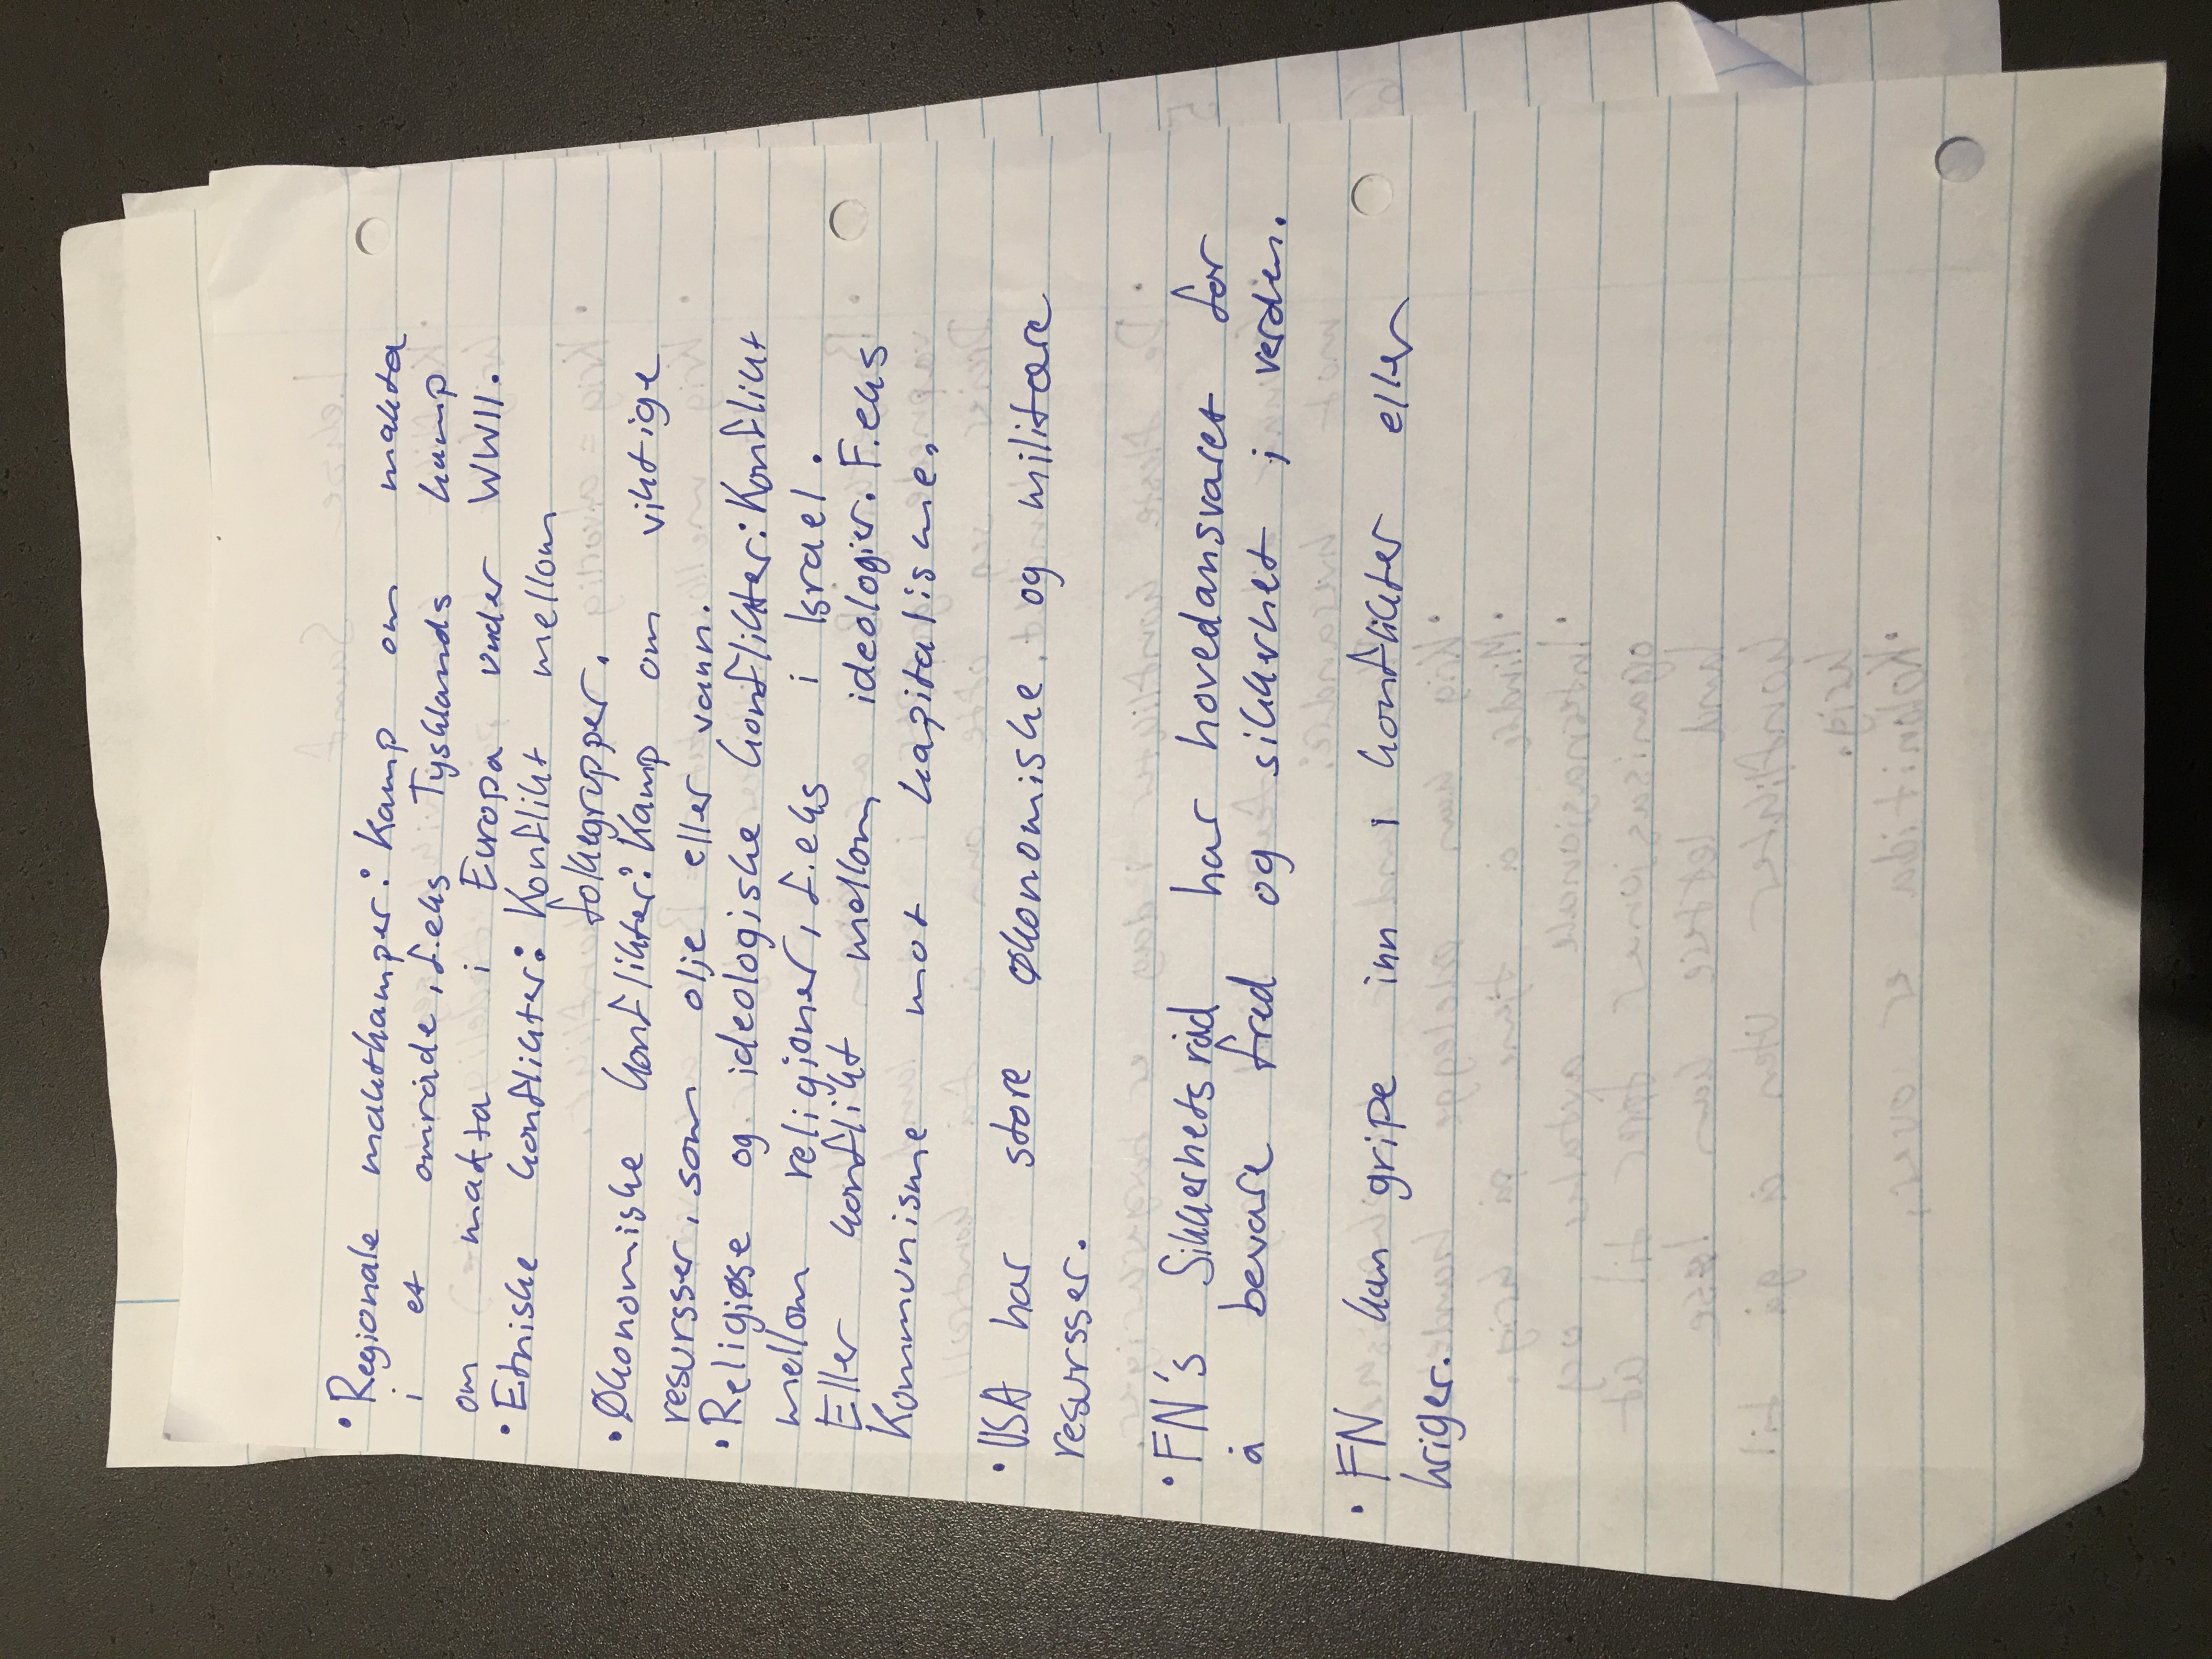 • Regionale maktkamper: Kamp om makta
i et område, f.eks Tysklands kamp
om makta i Europa under WWII.
• Etniske konflikter: Konflikt mellom
folkegrupper.
• Økonomiske konflikter: Kamp om viktige
resursser, som olje eller vann.
• Religiøse og ideologiske konflikter: Konflikt
mellom religioner, f.eks i Israel.
Eller konflikt mellom ideologier. F.eks
Kommunisme mot kapitalisme.
• USA har store økonomiske og militære
resursser.
• FN's Sikkerhetsråd har hovedansvaret for
å bevare fred og sikkerhet i verden.
• FN kan gripe inn i konflikter eller
kriger.